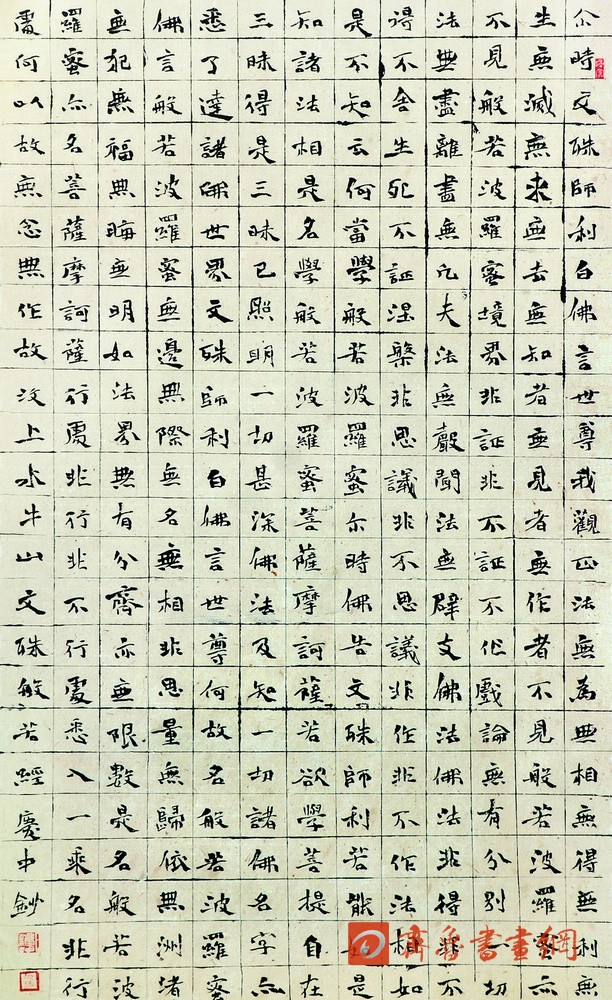 尒時文殊師利白佛言世尊我觀正法無為無相無得無利無
生無滅無来無去無知者無見者無作者不見般若波羅蜜亦
不見般若波羅蜜境界非証非不証不作戲論無有分別一切
法無盡離盡無凡夫法無聲聞法無辟支佛法佛法非得非不
得不舍生死不証涅槃非思議非不思議非作非不作法相如
是不知云何當學般若波羅蜜尒時佛告文殊師利若能如是
知諸法相是名學般若波羅蜜菩薩摩訶薩若欲學菩提自在
三昧得是三昧已照明一切甚深佛法及知一切諸佛名字亦
悉了達諸佛世界文殊師利白佛言世尊何故名般若波羅蜜
佛言般若波羅蜜無邊無際無名無相非思量無歸依無洲渚
無犯無福無晦無明如法界無有分齊亦無限數是名般若波
羅蜜亦名菩薩摩訶薩行處非行非不行處悉入一乘名非行
處何以故無念無作故汶上水牛山文殊般若經慶中鈔
齊魯書畫網